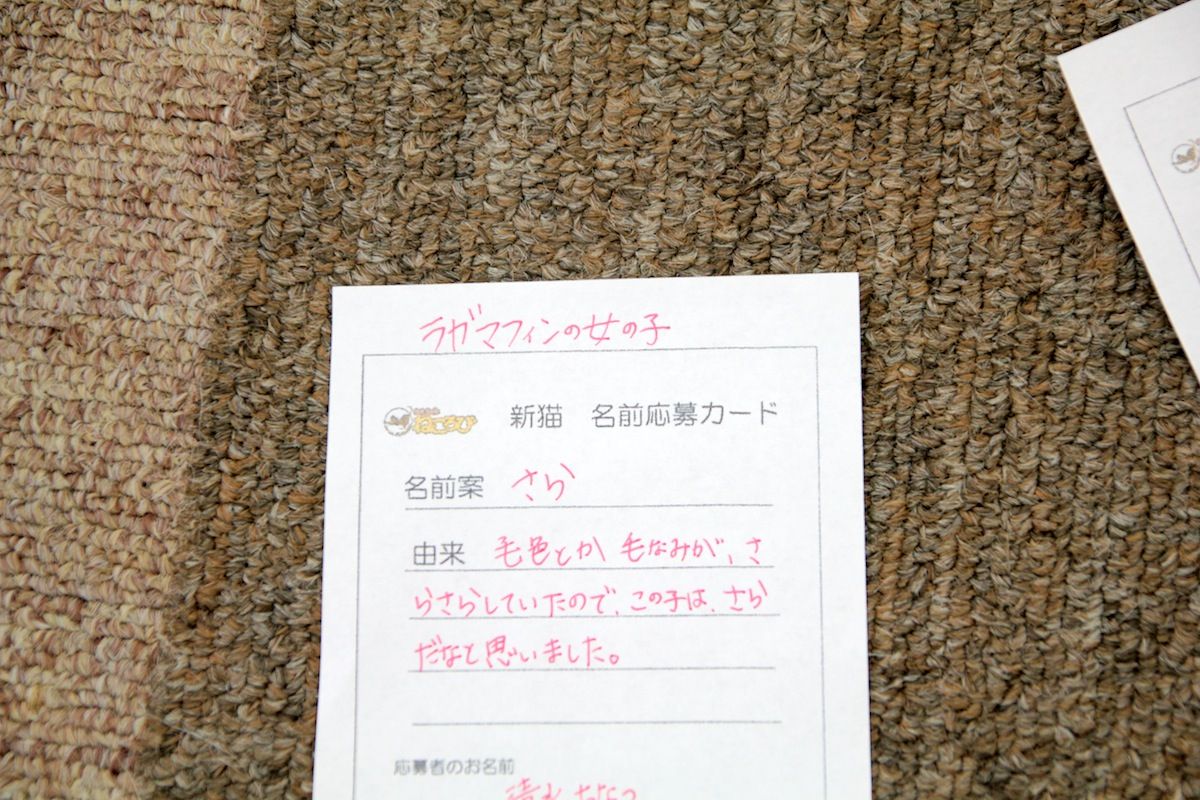 ラガマフィンの女の子
ねころび 新猫 名前応募カード
名前案 さら
由来 毛色とか毛なみが、さ
らさらしていたので、この子は、さら
だなと思いました。
応募者のお名前